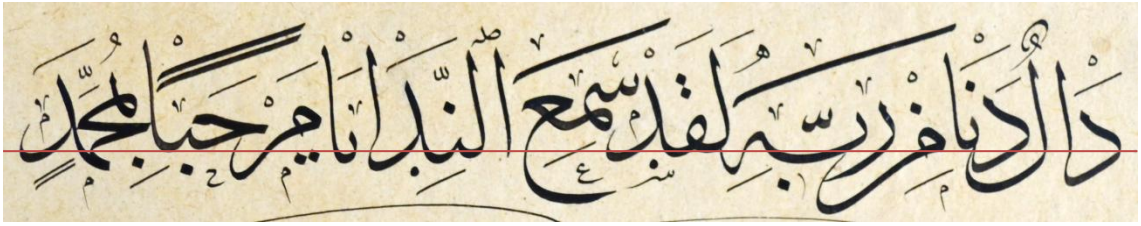 دَالُ دَنَا مِنْ رَبِّهِ لَقَدْ سَمِعَ النِّدَا يَا مَرْحَبًا بِمُحَمَّدٍ